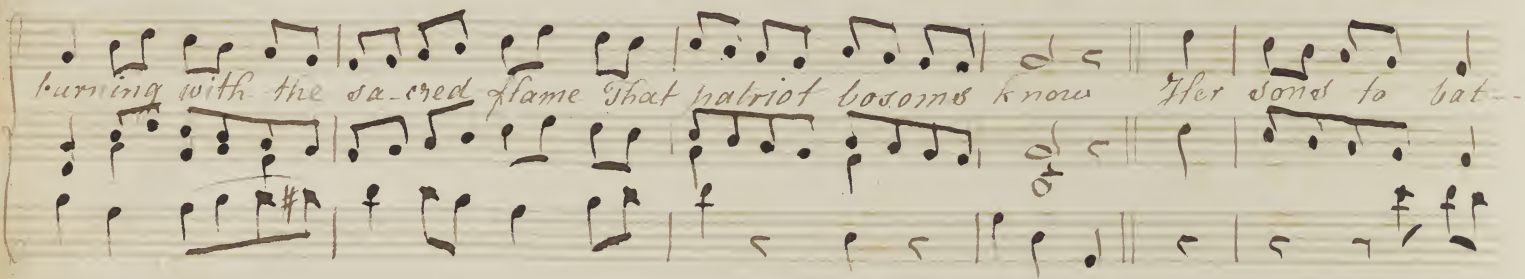 burning with the sa-cred flame That patriot bosoms know Her sons to bat--